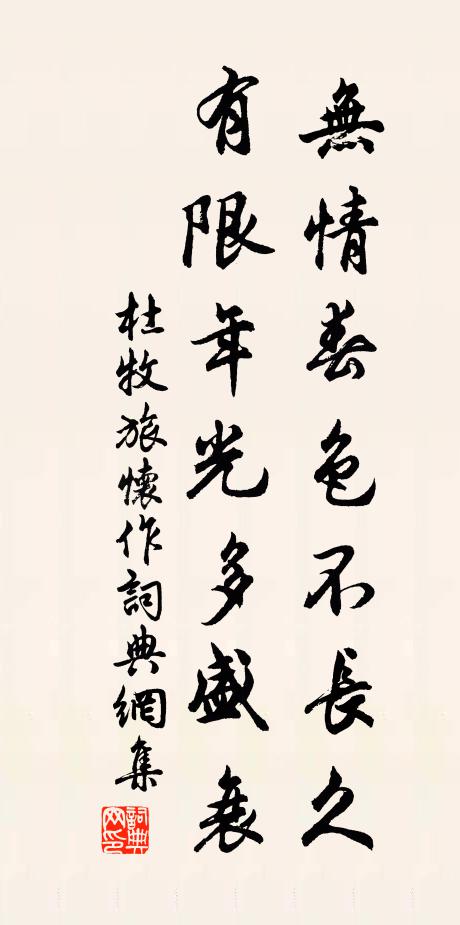 無情春色不長久
有限年光多盛衰
杜牧旅懷作詞典網集
詞典網印